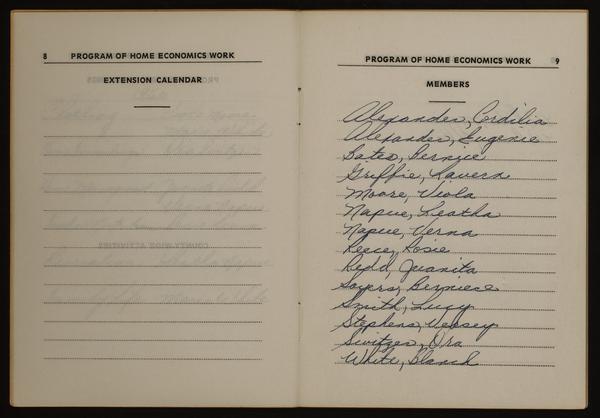 8 PROGRAM OF HOME ECONOMICS WORK
EXTENSION CALENDAR
PROGRAM OF HOME ECONOMICS WORK 9
MEMBERS
Alexander, Cordilia
Alexander, Eugenie
Bates, Bernice
Griffie, Lavern
Moore, Viola
Napue, Leatha
Napue, Verna
Reece, Rosie
Redd, Juanita
Sayers, Berniece
Smith, Lucy
Stephens, Versey
Switzer, Ora
White, Blanch